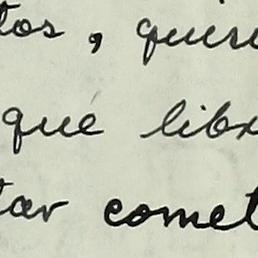 tos, quisi
que libr
tar comet